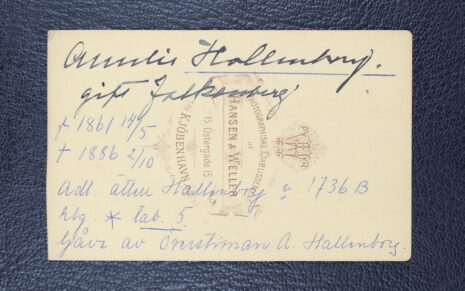 Amelie Hallenborg.
gift Falkenberg
+ 1861 14/5
+ 1886 2/10
Adl. ätten Hallenborg nr 1736 B
Elg. * tab. 5
Gåva av Överstinnan A. Hallenborg.
PHOTOGRAPHISKE ETABLISSEMENT
AF
HANSEN & WELLER
15 Ostergade 15
KJÖBENHAVN